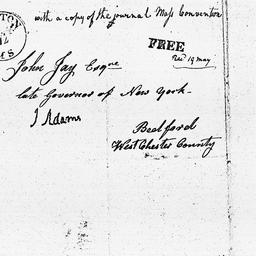 with a copy of the journal Mass Convention
TON
12
MS
FREE
Recd 19 may
John Jay Esqre
late Governor of New York-
J Adams
Bedford
West Chester County